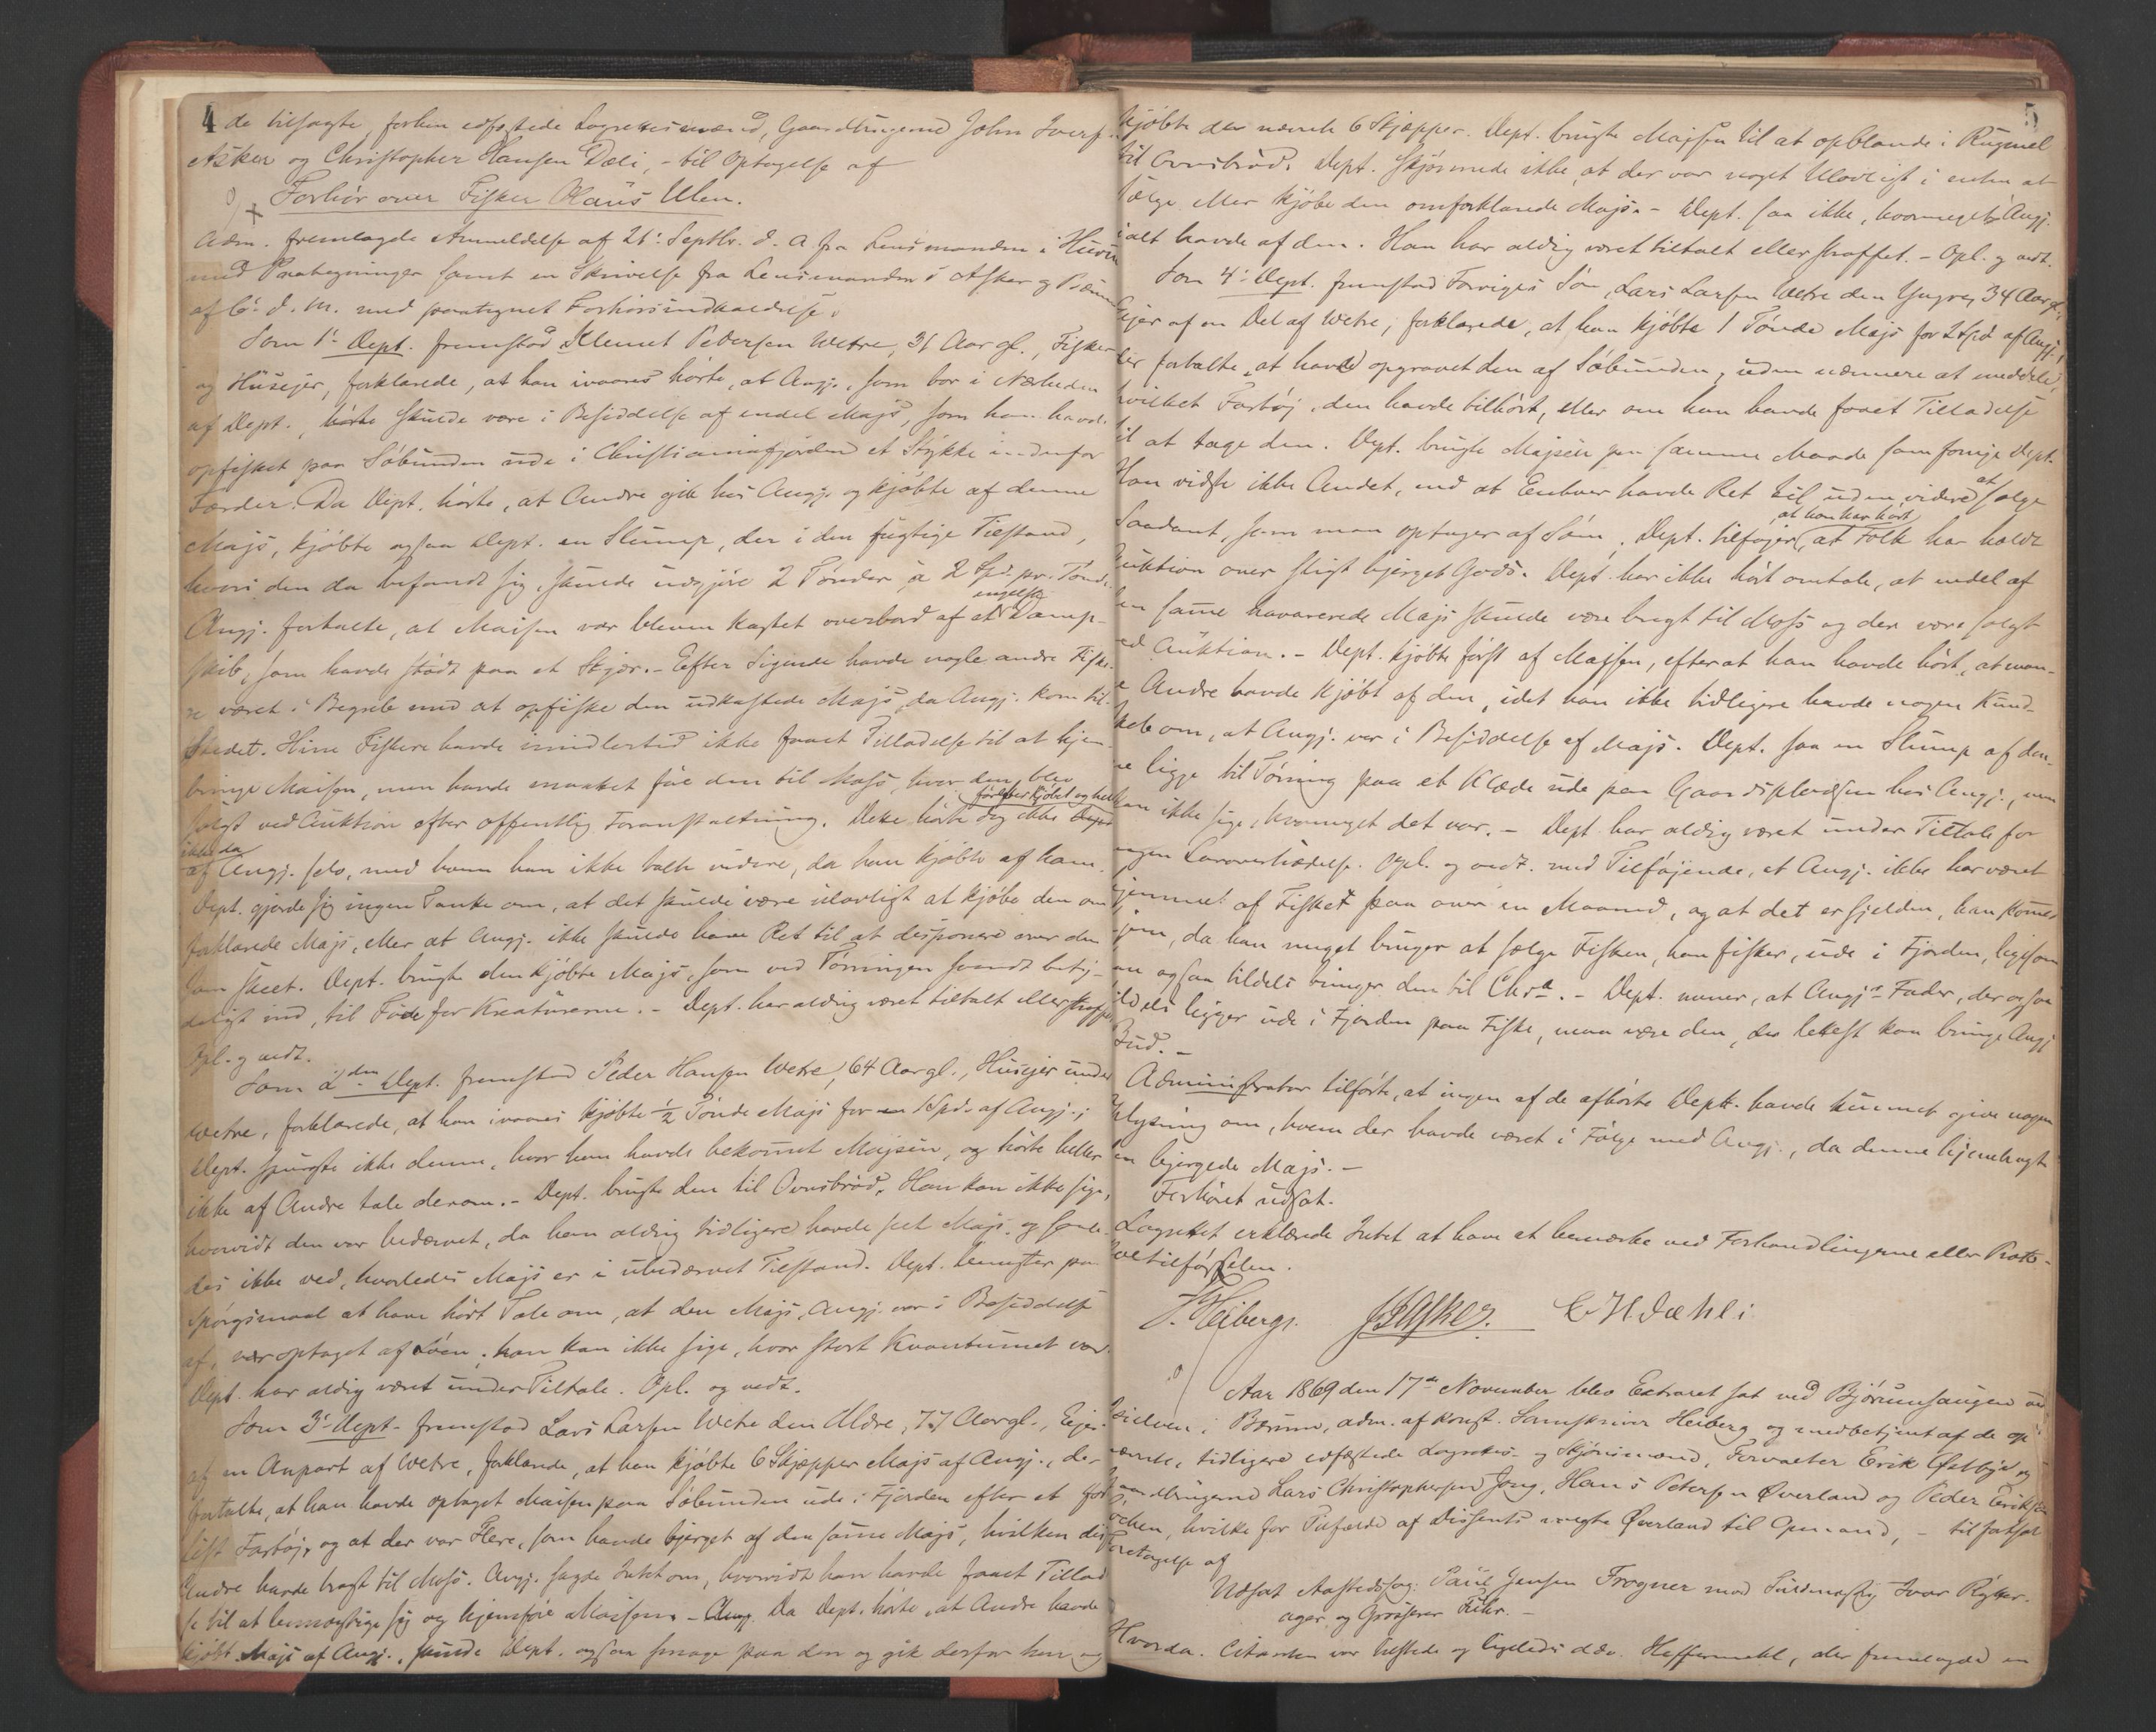 4
de tilsagte, forhen edfæstede Lagrettesmænd, Gaardbrugerne John Iverf.
Asker og Christopher Hansen Dæli, - til Optagelse af
Forhör over Fisker Olaüs Ulen.
Adm. fremlagde Anmeldelse af 21' Septbr. d. A. fra Lensmanden i
med Paategninger samt en Skrivelse fra Lensmanden i Asker og Bærum
af 6' d. M. med paategnet Forhörsindkaldelse.
Som 1' Dept. fremstod Klemet Pedersen Wetre, 31 Aar gl., Fisker
og Huseier, forklarede, at han ivaares hörte, at Angj., som bor i Nærheden
af Dept., skulde være i Besiddelse af endel Majs, som han havde
opfisket paa Söbunden ude i Christianiafjorden et Stykke indenfor
Færder. Da Dept. hörte, at Andre gik hos Angj. og kjöbte af denne
Majs, kjöbte ogsaa Dept. en Slump, der i den fugtige Tilstand,
hvori den da befandt sig, skulde udgjöre 2 Tönder à 2 Spd. pr. Tönde.
Angj. fortalte, at Maisen var bleven kastet overbord af et engelsk Damp-
skib, som havde stödt paa et Skjær. - Efter Sigende havde nogle andre Fiske-
re været i Begreb med at opfiske den udkastede Majs, da Angj. kom til-
stedet. Hine Fiskere havde imidlertid ikke faaet Tilladelse til at hjem-
bringe Maisen, men havde maattet före den til Moss, hvor den blev
solgt ved Auktion efter offentlig Foranstaltning. Dette hörte
af Angj. selv, med hvem han ikke talte videre, da han kjöbte af ham.
Dept. gjorde sig ingen Tanke om, at det skulde være ulovligt at kjöbe den om-
forklarede Majs, eller at Angj. ikke skulde have Ret til at disponere over den
som skeet. Dept. brugte den kjöbte Majs, som ved Törringen svandt bety-
deligt ind, til Föde for Kreaturerne. - Dept. har aldrig været tiltalt eller straffet.
Opl. og vedt.
Som 2den Dept. fremstod Peder Hansen Wetre, 64 Aar gl., Huseier under
Wetre, forklarede, at han ivaares kjöbte ½ Tönde Majs for 1 Spd. af Angj.;
Dept. spurgte ikke denne, hvor han havde bekommet Majsen, og hörte heller
ikke af Andre tale derom. - Dept. brugte den til Ovnsbröd. Han kan ikke sige,
hvorvidt den var bedærvet, da han aldrig tidligere havde seet Majs og saale-
des ikke ved, hvorledes Majs er i ubedærvet Tilstand. Dept. benegter paa
Spörgsmaal at have hört Tale om, at den Majs, Angj. var i Besiddelse
af, var optaget af Söen; han kan ikke sige, hvor stort Kvantumet var.
Dept. har aldrig været under Tiltale. Opl. og vedt.
Som 3' Dept. fremstod Lars Larsen Wetre den Ældre, 77 Aar gl., Eier
af en Anpart af Wetre, forklarede, at han kjöbte 6 Skjæpper Majs af Angj., der
fortalte, at han havde optaget Maisen paa Söbunden ude i Fjorden efter et for-
list Fartöj, og at der var Flere, som havde bjerget af den samme Majs, hvilken
Andre havde bragt til Moss. Angj. sagde Intet om, hvorvidt han havde faaet Tillad
se til at bemægtige sig og hjemföre Maisen. - Da Dept. hörte, at Andre havde
kjöbt Majs af Angj., skulde Dept. ogsaa smage paa den og gik derfor hen og
5
kjöbte der nævnte 6 Skjæpper. Dept. brugte Majsen til at opblande i Rugmel
til Ovnsbröd. Dept. skjönnede ikke, at der var noget Ulovligt i enten at
sælge eller kjöbe den omforklarede Majs. - Dept. saa ikke, hvormeget Angj.
ialt havde af den. Han har aldrig været tiltalt eller straffet. - Opl. og vedt.
Som 4' Dept. fremstod Forriges Sön, Lars Larsen Wetre den Yngre, 34 Aar gl.,
Eier af en Del af Wetre, forklarede, at han kjöbte 1 Tönde Majs for 2 Spd. af Angj.,
der fortalte, at have opgravet den af Söbunden, uden nærmere at meddele,
hvilket Fartöj den havde tilhört, eller om han havde faaet Tilladelse
til at tage den. Dept. brugte Majsen paa samme Maade som forrige Dept.
Han vidste ikke Andet, end at Enhver havde Ret til uden videre at sælge
Saadant, som man optager af Söen. Dept. tilföjer, at han har hört at Folk har holdt
Auktion over sligt bjerget Gods. Dept. har ikke hört omtale, at endel af
den samme havarerede Majs skulde være bragt til Moss og der være solgt
ved Auktion. - Dept. kjöbte först af Majsen, efterat han havde hört, at man-
e Andre havde kjöbt af den, idet han ikke tidligere havde nogen Kund-
skab om, at Angj. var i Besiddelse af Majs. Dept. saa en Slump af den-
ne ligge til Törring paa et Klæde ude paa Gaardspladsen hos Angj., men
kan ikke sige, hvormeget det var. - Dept. har aldrig været under Tiltale for
nogen Lovovertrædelse. Opl. og vedt. med Tilföjende, at Angj. ikke har været
hjemme af Fisket paa over en Maaned, og at det er sjelden, han kommer
hjem, da han meget bruger at sælge Fisken, han fisker, ude i Fjorden, ligesom
han ogsaa tildels bringer den til Chra. - Dept. mener, at Angjs Fader, der ogsaa
tildels ligger ude i Fjorden paa Fiske, maa være den, der lettest kan bringe Angj.
Bud. -
Administrator tilförte, at ingen af de afhörte Deptt. havde kunnet give nogen
Oplysning om, hvem der havde været i Fölge med Angj., da denne hjembragte
den bjergede Majs. -
Forhöret udsat.
Lagrettet erklærede Intet at have at bemærke ved Forhandlingerne eller Proto-
koltilförselen.
J. Heiberg. JIAsker. C H Dæhli
Aar 1869 den 17de November blev Extraret sat ved Bjørumsaugen ved
i Bærum, adm. af konst. Sorenskriver Heiberg og medbetjent af de op-
nævnte, tidligere edfæstede Lagrettes- og Skjönsmænd, Forvalter Erik Østbye og
Gaardbrugerne Lars Christophersen Jong, Hans Petersen Øverland og Peder Eriksen
, hvilke for Tilfælde af Dissents valgte Øverland til Opmand, - til fortsat
Foretagelse af
Udsat Aastedssag: Paul Jensen Frogner mod Iver Ryker-
ager og Grosserer Fuhr. -
Hvorda. Citanten var tilstede og ligeledes dav. Heffermehl, der fremlagde en